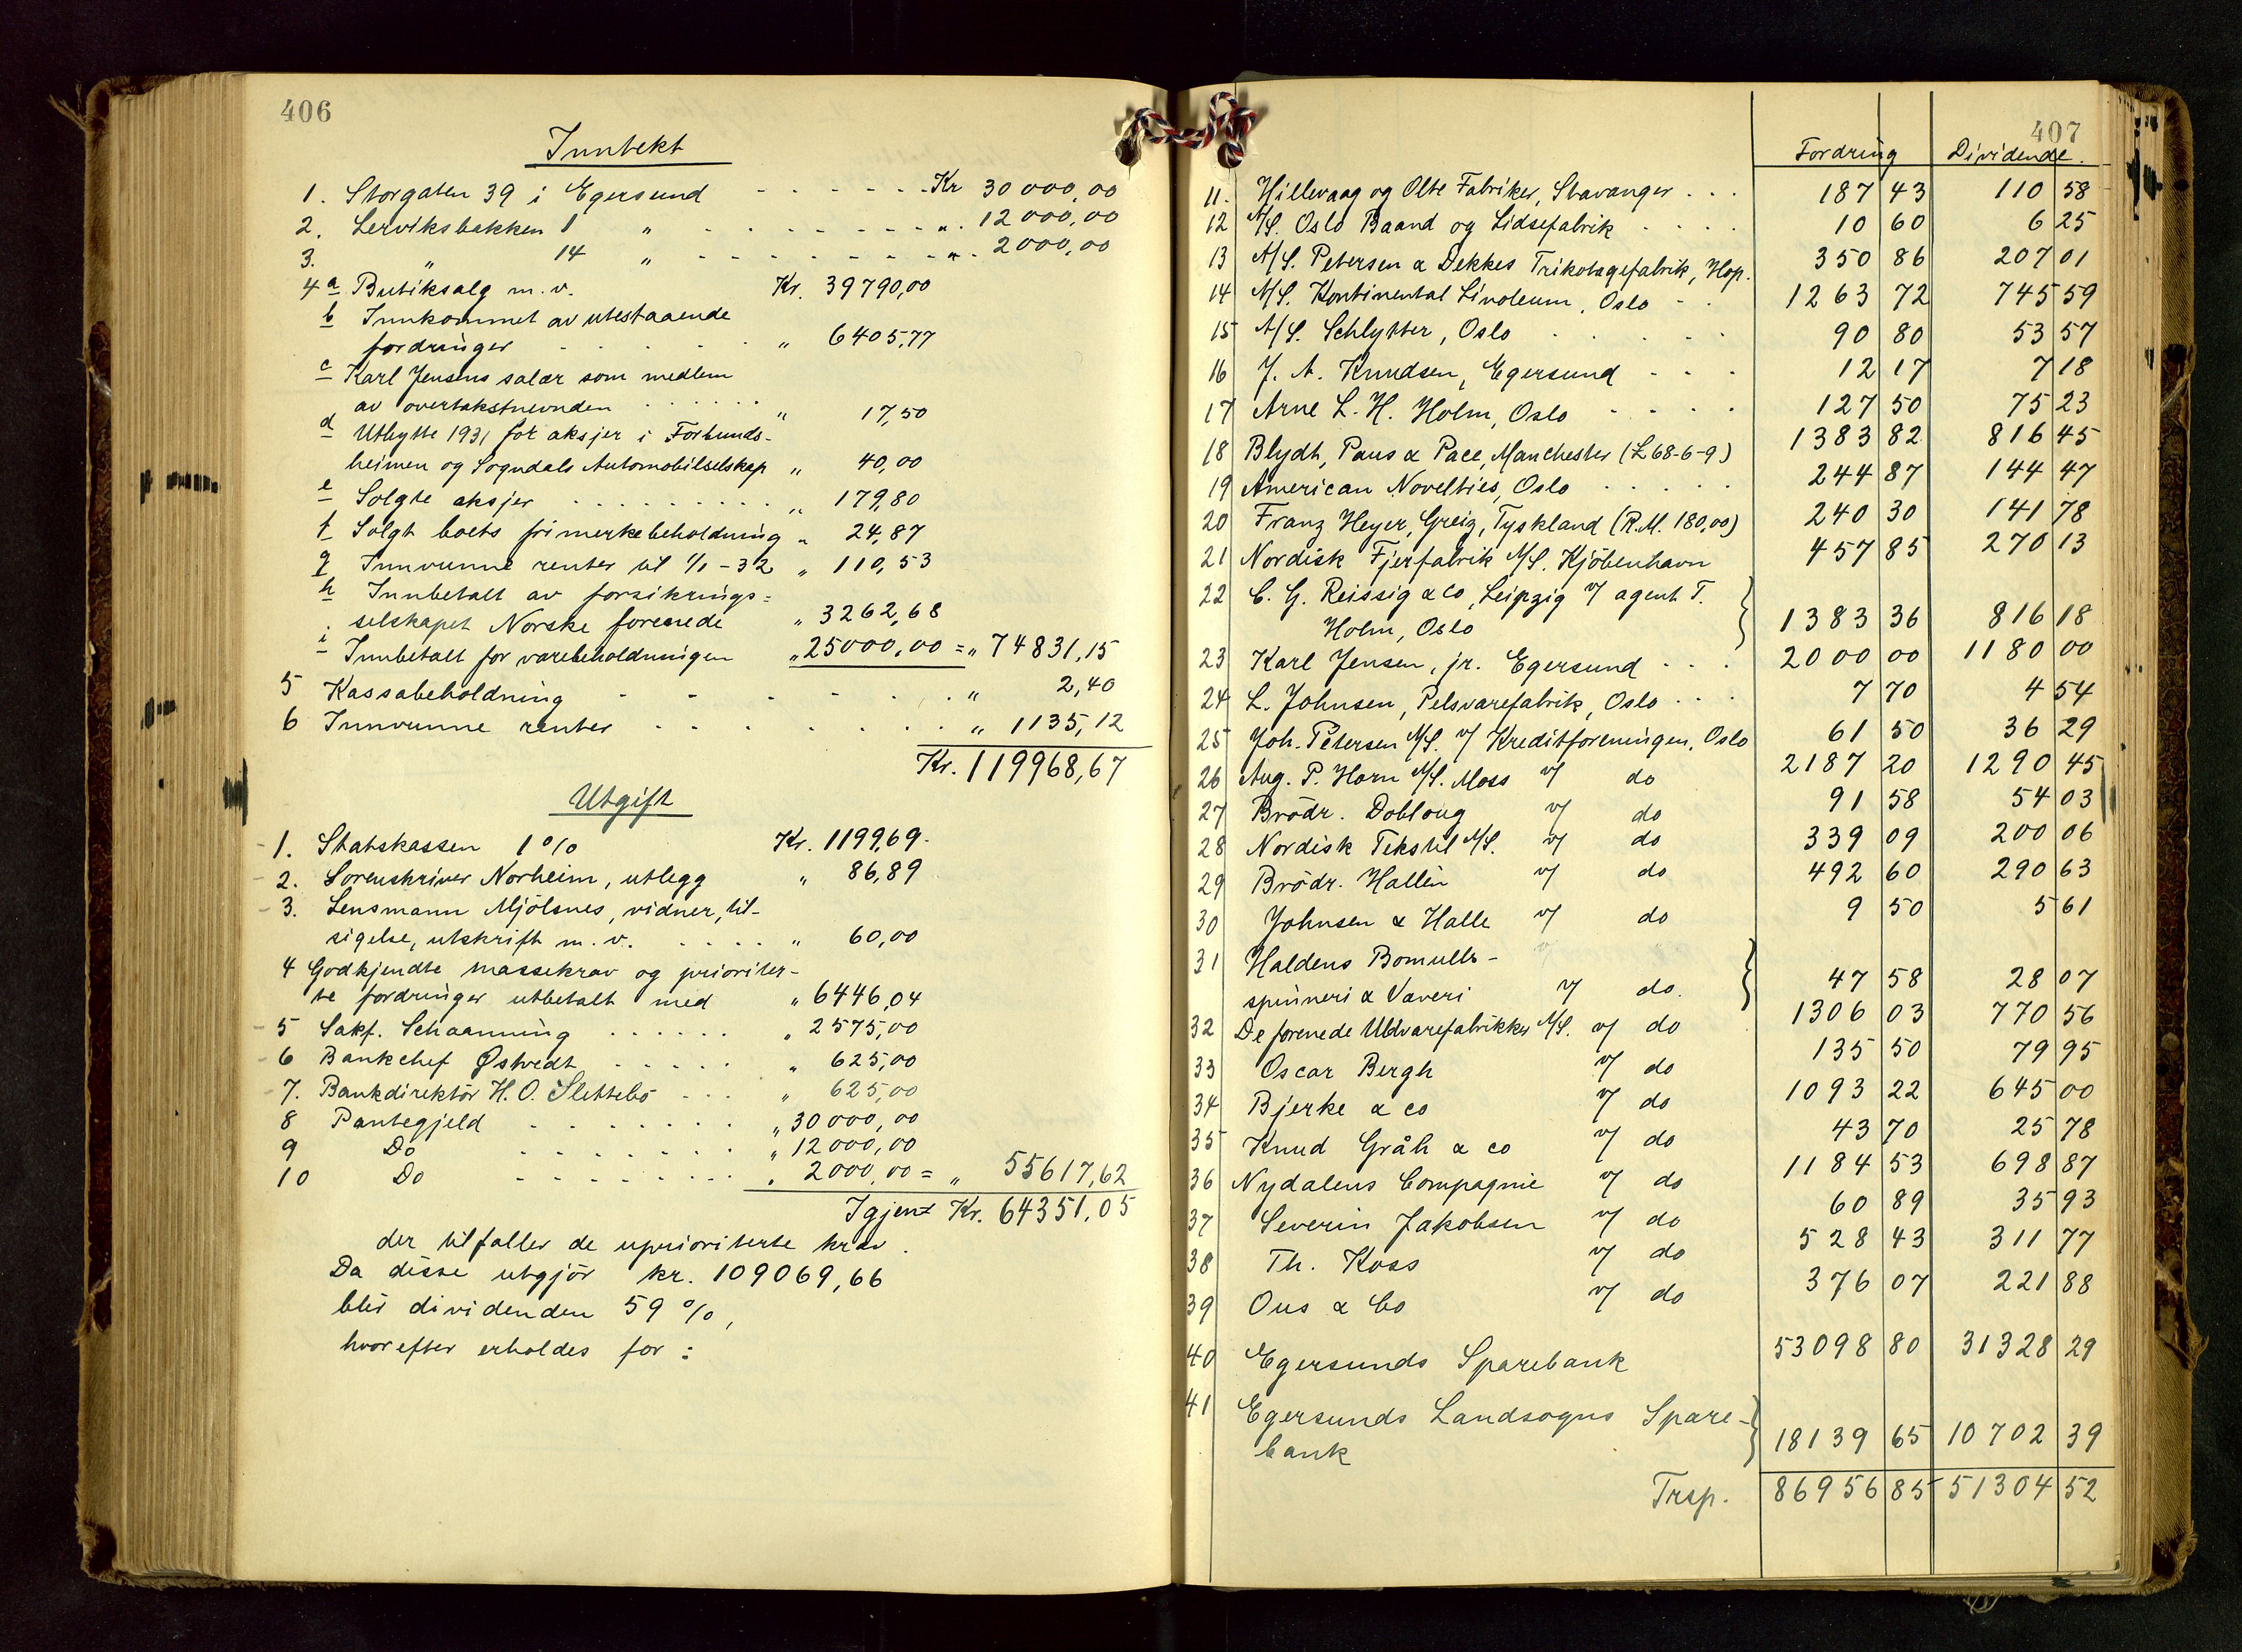 406
Inntekt
1. Storgaten 39 i Egersund - - - - - - Kr 30000,00
2. Lerviksbakken 1 " - - - - - - - - - ". 12000,00
3. " 14 " - - - - - - - - - ". 2000,00
4 a Butiksalg m.v. Kr. 39790,00
b Innkommet av utestaaende
fordringer - . . . . . " 6405,77
c Karl Jensens salær som medlem
av overtakstnevnden . . . . . . " 17,50
d Utbytte 1931 for aksjer i Forbunds-
heimen og Sogndals Automobilselskap " 40,00
e Solgte aksjer . . . . . . . . . " 179,80
f Solgt boets frimerkebeholdning " 24,87
g Innvunne renter til 1/1 - 32 " 110,53
h Innbetalt av forsikrings=
selskapet Norske forenede " 3262,68
i Innbetalt for varebeholdningen " 25000,00 = " 74831,15
5 Kassabeholdning - - - - . . " 2,40
6 Innvunne renter - - - - . . . " 1135,12
Kr. 119968,67
Utgift
1. Statskassen 1% Kr. 1199,69.
2. Sorenskriver Norheim, utlegg " 86,89
3. Lensmann Mjölsnes, vidner, til-
sigelse, utskrift m.v. . . . . . " 60,00
4 Godkjendte massekrav og prioriter-
te fordringer utbetalt med " 6446,04
5 Sakf. Schaanning . . . . . . " 2575,00
6 Bankchef Østvedt . . . . . " 625,00
7. Bankdirektör H. O. Slettebö - . . " 625,00
8 Pantegjeld . . . . . . . . " 30000,00
9 Do . . . . . . . " 12000,00
10 Do - - - - - - - - - " 2000,00 = " 55617,62
Igjen Kr. 64351,05
der tilfaller de uprioriterte krav.
Da disse utgjör kr. 109069,66
blir dividenden 59 %,
hvorefter erholdes for :
407
Fordring Dividende.
11. Hillevaag og Olte Fabriker, Stavanger . . . 187 43 110 58
12 A/S. Oslo Baand og Lidsefabrik . . . . 10 60 6 25
13 A/S. Petersen & Dekkes Trikotagefabrik, Hop. 350 86 207 01
14 A/S. Kontinental Linoleum, Oslo - . 1263 72 745 59
15 A/S. Schlytter, Oslo . . . . . 90 80 53 57
16 J. A. Knudsen, Egersund - - . 12 17 7 18
17 Arne L. H. Holm, Oslo - - - . 127 50 75 23
18 Blydt, Paus & Pace, Manchester (£ 68-6-9) 1383 82 816 45
19 American Novelties, Oslo . . . . . 244 87 144 47
20 Franz Heyer, Greiz, Tyskland (R.M. 180,00) 240 30 141 78
21 Nordisk Fjerfabrik A/S. Kjöbenhavn 457 85 270 13
22 C. G. Reissig & co, Leipzig v/ agent T.
Holm, Oslo } 1383 36 816 18
23 Karl Jensen, jr. Egersund - . . 2000 00 1180 00
24 L. Johnsen, Pelsvarefabrik, Oslo . . . 7 70 4 54
25 Joh. Petersen A/S. v/ Kreditforeningen, Oslo 61 50 36 29
26 Aug. P. Horn A/S. Moss v/ do 2187 20 1290 45
27 Brödr. Dobloug v/ do 91 58 54 03
28 Nordisk Tekstil A/S. v/ do 339 09 200 06
29 Brödr. Hallèn v/ do 492 60 290 63
30 Johnsen & Halle v/ do 9 50 5 61
31 Haldens Bomulls-
spinneri & Væveri v/ do. } 47 58 28 07
32 De forenede Uldvarefabrikker A/S. v/ do 1306 03 770 56
33 Oscar Bergh v/ do 135 50 79 95
34 Bjerke & co v/ do 1093 22 645 00
35 Knud Gråh & co v/ do 43 70 25 78
36 Nydalens Compagnie v/ do 1184 53 698 87
37 Severin Jakobsen v/ do 60 89 35 93
38 Th. Koss v/ do 528 43 311 77
39 Ous & Co v/ do 376 07 221 88
40 Egersunds Sparebank 53098 80 31328 29
41 Egersunds Landsogns Spare-
bank } 18139 65 10702 39
Trsp. 86956 85 51304 52